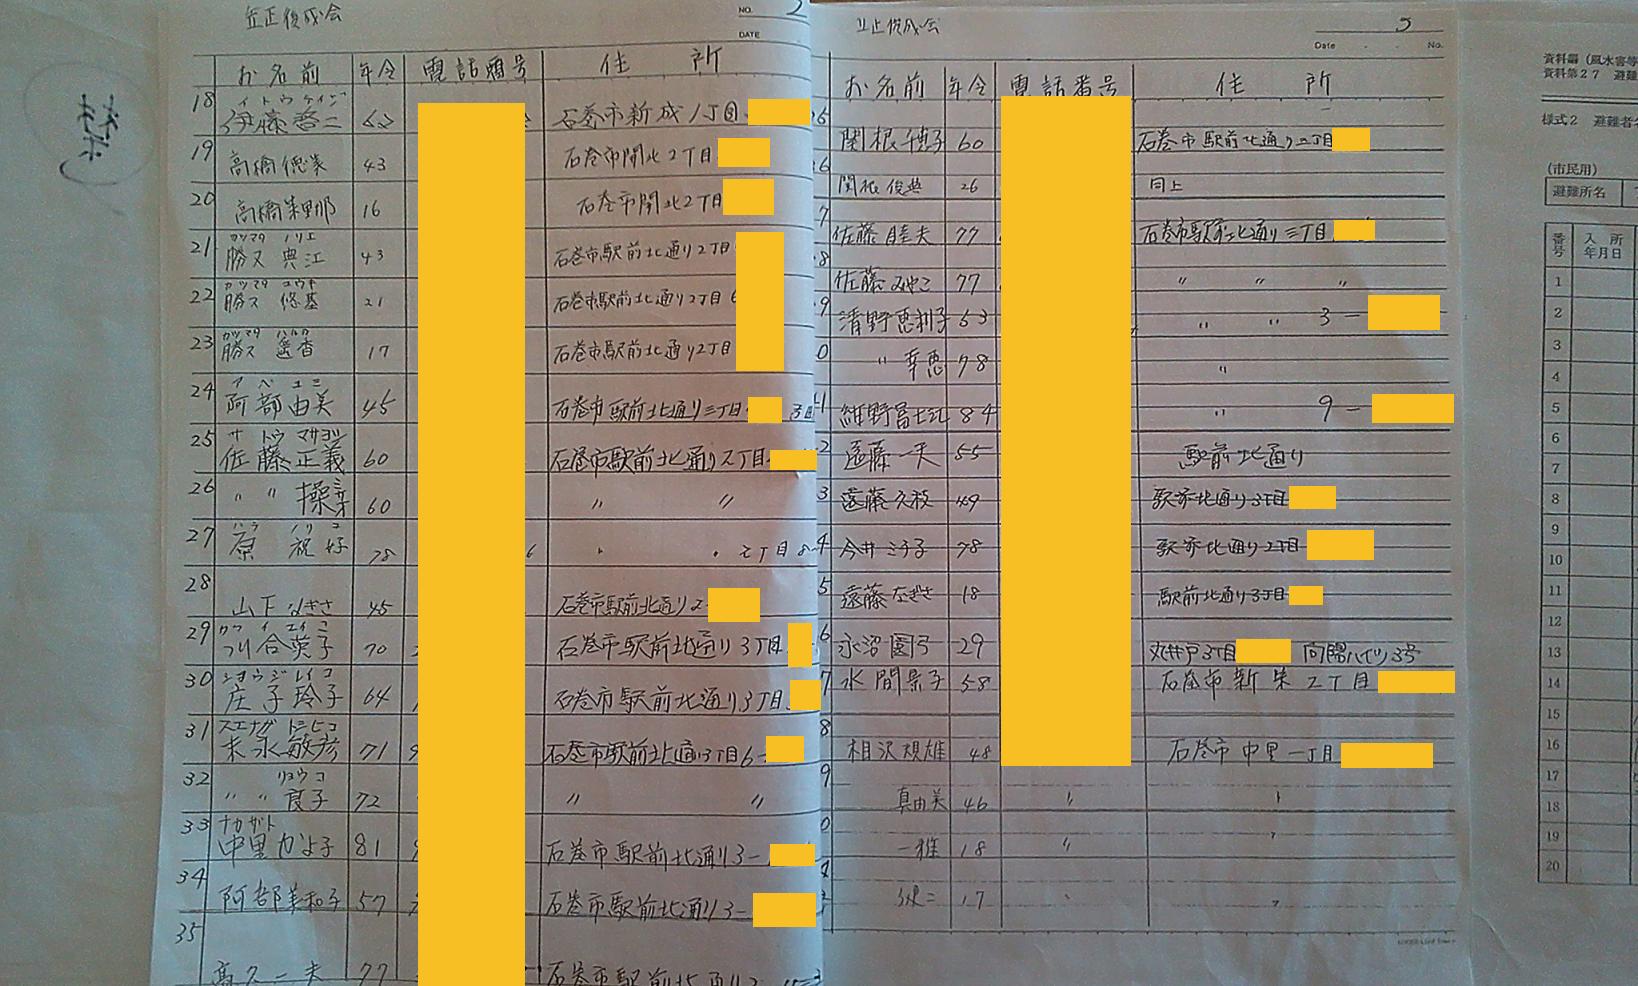 立正佼成会
NO. 2
DATE
お名前 年令 電話番号 住 所
イトウ ケイジ
18 伊藤啓二 62 石巻市新成1丁目
19 高橋徳美 43 石巻市開北2丁目
20 高橋朱里那 16 石巻市開北2丁目
カツマタ ノリエ
21 勝又 典江 43 石巻市駅前北通り2丁目
カツマタ ユウキ
22 勝又 悠基 21 石巻市駅前北通り2丁目
カツマタ ハルカ
23 勝又 遥香 17 石巻市駅前北通り2丁目
アベ ユミ
24 阿部由美 45 石巻市駅前北通り三丁目
サトウ マサヨシ
25 佐藤正義 60 石巻市駅前北通り2丁目
26 〃 〃 操 60 〃 〃
ハラ ノリコ
27 原 祝好 78 2丁目8
28 山下なぎさ 45 石巻市駅前北通り2
カワイ エイコ
29 川合英子 70 石巻市駅前北通り3丁目
ショウジ レイコ
30 庄子玲子 64 石巻市駅前北通り3丁目
スエナガ トシヒコ
31 末永敏彦 71 石巻市駅前北通り3丁目6-
リョウコ
32 〃 〃 良子 72 〃 〃
ナカザト
33 中里かよ子 81 石巻市駅前北通り3-
34 阿部美和子 57 石巻市駅前北通り3-
35
高久一夫 77 石巻市駅前北通り2
立正佼成会
5
Date . . No.
お名前 年令 電話番号 住 所
関根千穂子 60 石巻市駅前北通り二丁目
関根俊典 26 同上
佐藤睦夫 77 石巻市駅前北通り三丁目
佐藤みやこ 77 〃 〃 〃
清野恵利子 53 〃 〃 3-
〃 幸恵 78 〃
紺野冨士江 84 〃 9-
遠藤一夫 55 駅前北通り
遠藤久枝 49 駅前北通り3丁目
今井ミチ子 78 駅前北通り2丁目
遠藤なぎさ 18 駅前北通り3丁目
永沼園弓 29 丸井戸3丁目 向陽ハイツ3号
水間景子 58 石巻市新栄2丁目
相沢規雄 48 石巻市中里一丁目
真由美 46 〃 〃
一雅 18 〃
17
資料編（風水害等
資料第27 避難
様式2 避難者
(市民用)
避難所名
番号 入所年月日
1
2
3
4
5
6
7
8
9
10
11
12
13
14
15
16
17
18
19
20